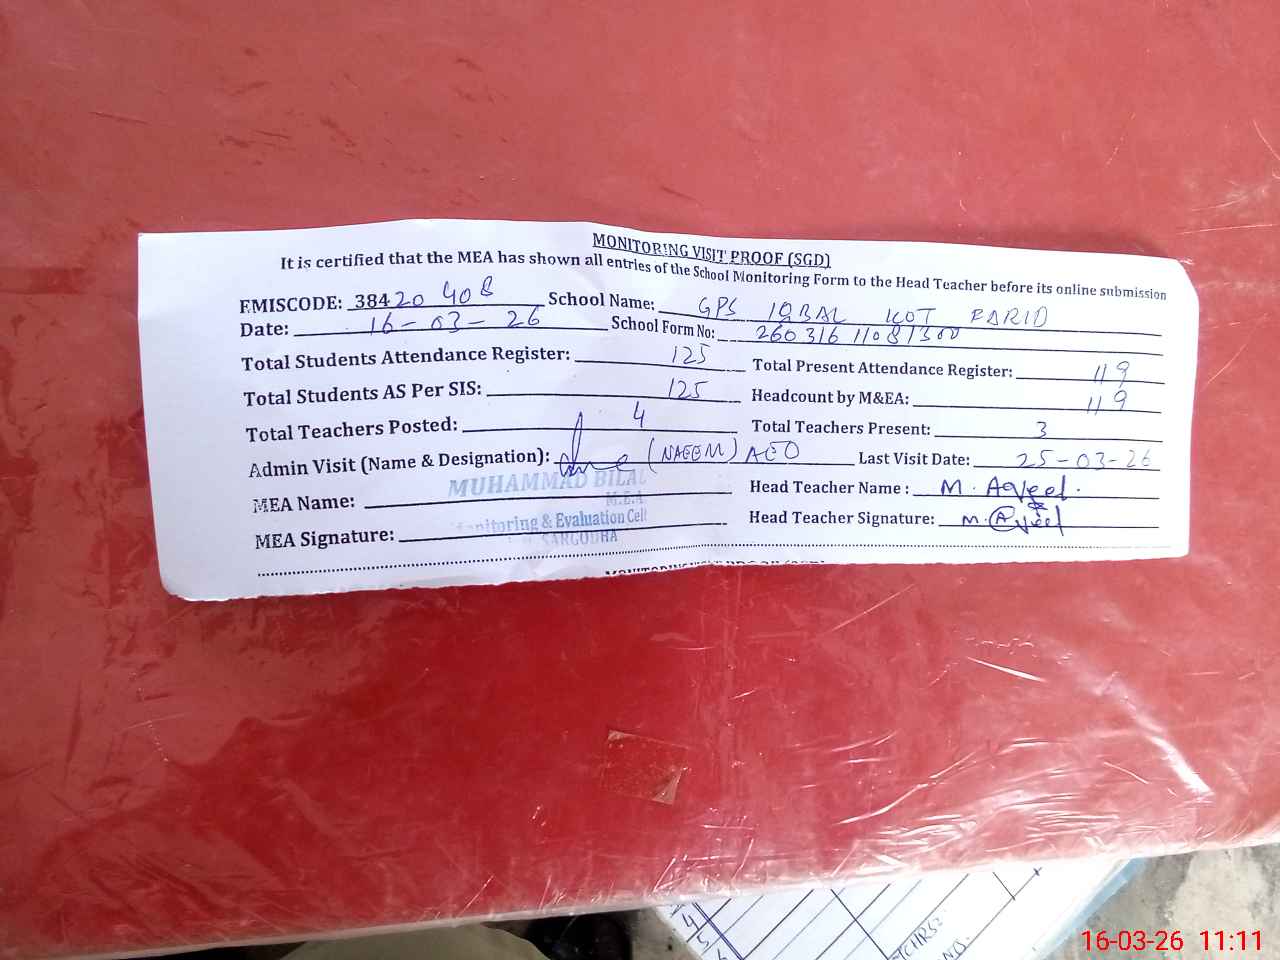 MONITORING VISIT PROOF (SGD)
It is certified that the MEA has shown all entries of the School Monitoring Form to the Head Teacher before its online submission
EMISCODE: 38420 408 School Name: GPS IQBAL KOT FARID
Date: 16-03-26 School Form No: 260316 11081300
Total Students Attendance Register: 125 Total Present Attendance Register: 119
Total Students AS Per SIS: 125 Headcount by M&EA: 119
Total Teachers Posted: 4 Total Teachers Present: 3
Admin Visit (Name & Designation): (NAEEM) AEO Last Visit Date: 25-03-26
MUHAMMAD BILAL
M.E.A
MEA Name: Head Teacher Name : M. Aqeel.
Monitoring & Evaluation Cell
MEA Signature: Head Teacher Signature: M. Aqeel
SARGODHA
4
5
6
TCHRS:
16-03-26 11:11